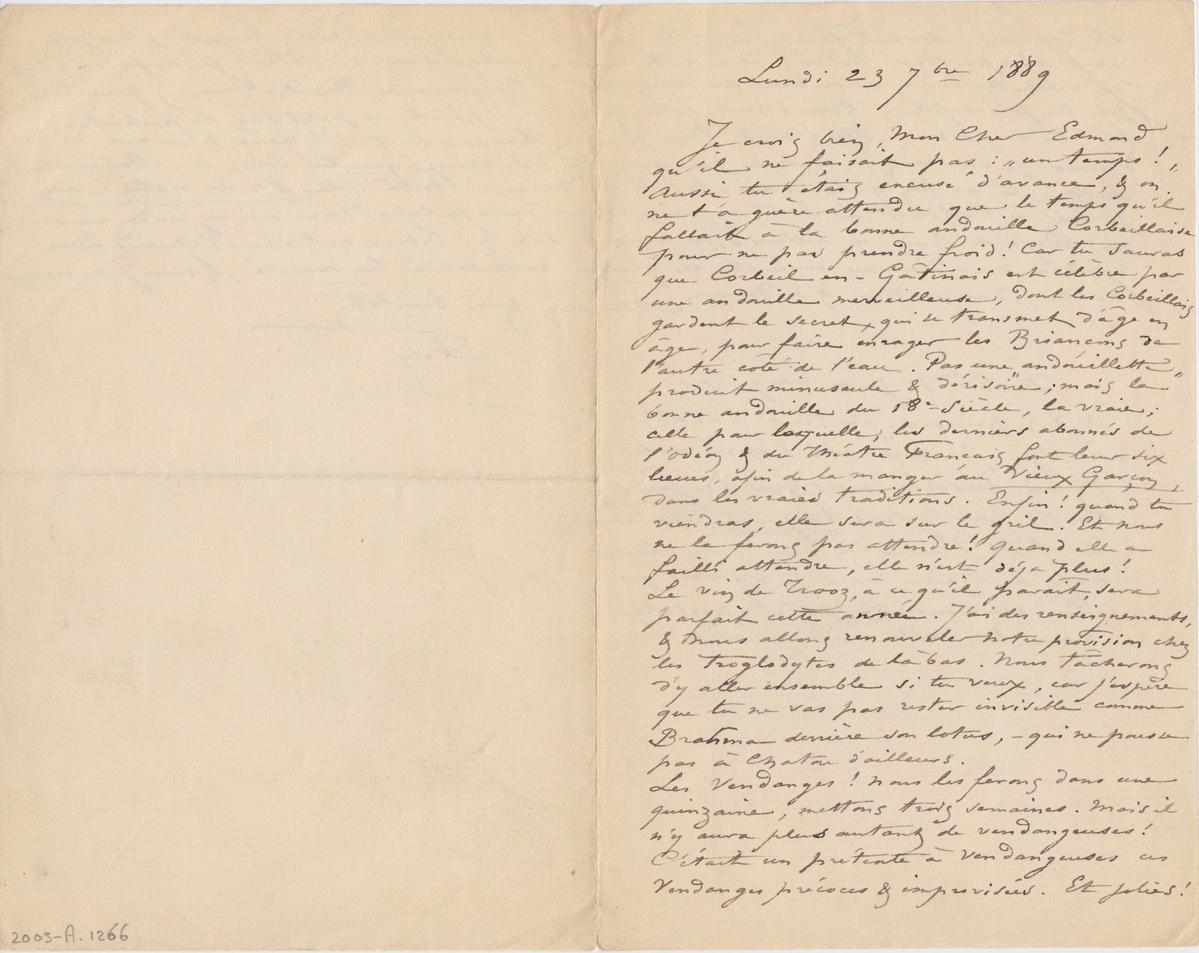 Lundi 23 7bre 1889
Je crois bien, Mon Cher Edmond
qu'il ne faisait pas : „un temps ! „
Aussi tu étais excusé d'avance, & on
ne t'a guère attendu que le temps qu'il
fallait à la bonne andouille Corbeillaise
pour ne pas prendre froid ! Car tu sauras
que Corbeil en-Gatinais est célèbre par
une andouille merveilleuse, dont les Corbeillais
gardent le secret, qui se transmet d'âge en
âge, pour faire enrager les Briançons de
l'autre côté de l'eau. Pas une „andouillette„
produit minuscule & dérisoire ; mais la
bonne andouille du 18e Siècle, la vraie ;
celle pour laquelle, les derniers abonnés de
l'Odéon & du Théâtre Français font leur six
lieues, afin de la manger au Vieux Garçon,
dans les vraies traditions. Enfin ! quand tu
viendras, elle sera sur le gril. Et nous
ne la ferons pas attendre ! Quand elle a
failli attendre, elle n'est déjà plus !
Le vin de Trooz, à ce qu'il parait, sera
parfait cette année. J'ai des renseignements,
& nous allons renouveler notre provision chez
les Troglodytes de là-bas. Nous tâcherons
d'y aller ensemble si tu veux, car j'espère
que tu ne vas pas rester invisible comme
Brahma derrière son lotus, - qui ne pousse
pas à Chatou d'ailleurs.
Les Vendanges ! nous les ferons dans une
quinzaine, mettons trois semaines. Mais il
n'y aura plus autant de vendangeuses !
C'était un prétexte à vendangeuses ces
Vendanges précoces & improvisées. Et jolies !
2003-A.1266